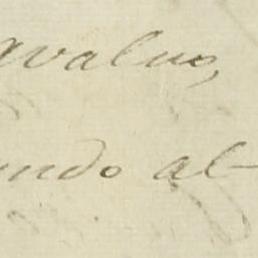 avaluo,
endo al-